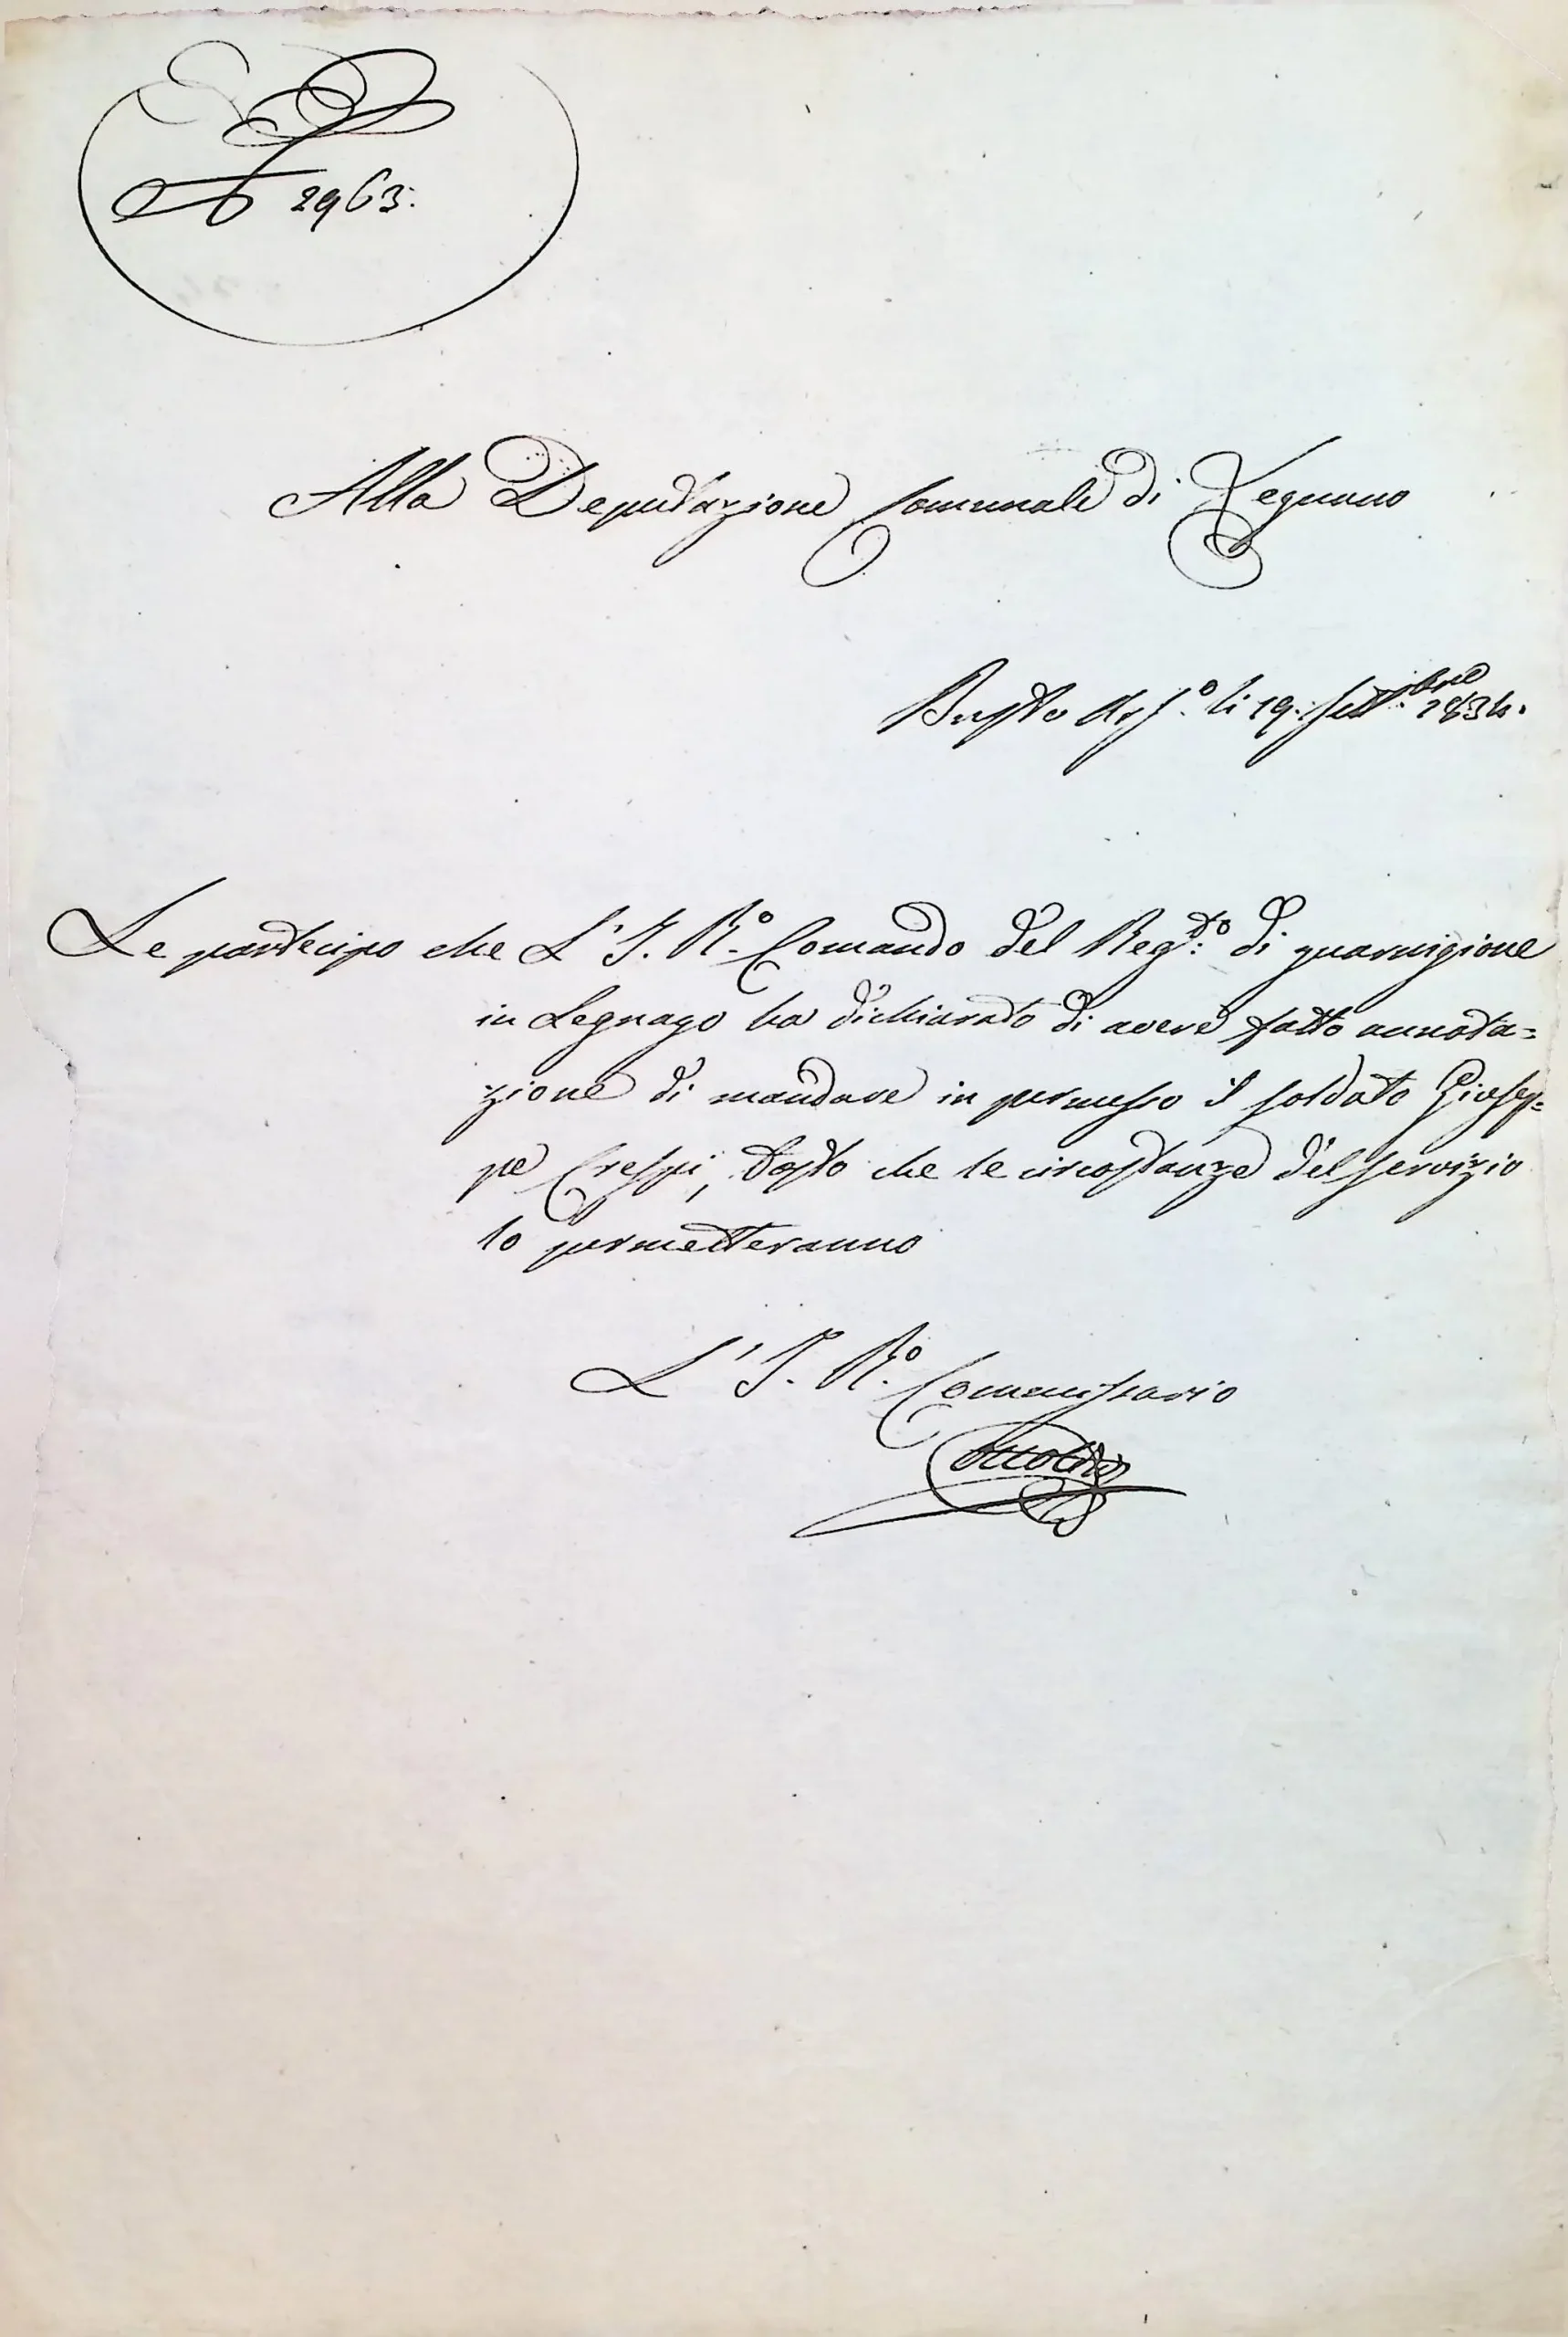 N 2963.
Alla Deputazione Comunale di Legnano
Busto Ars.o li 19. Sett.bre 1834.
Le partecipo che L' I. R.o Comando del Reg.to di guarnigione
in Legnago ha dichiarato di avere fatto annota=
zione di mandare in permesso il soldato Giusep=
pe Crespi, tosto che le circostanze del servizio
lo permetteranno
L' I. R.o Commissario